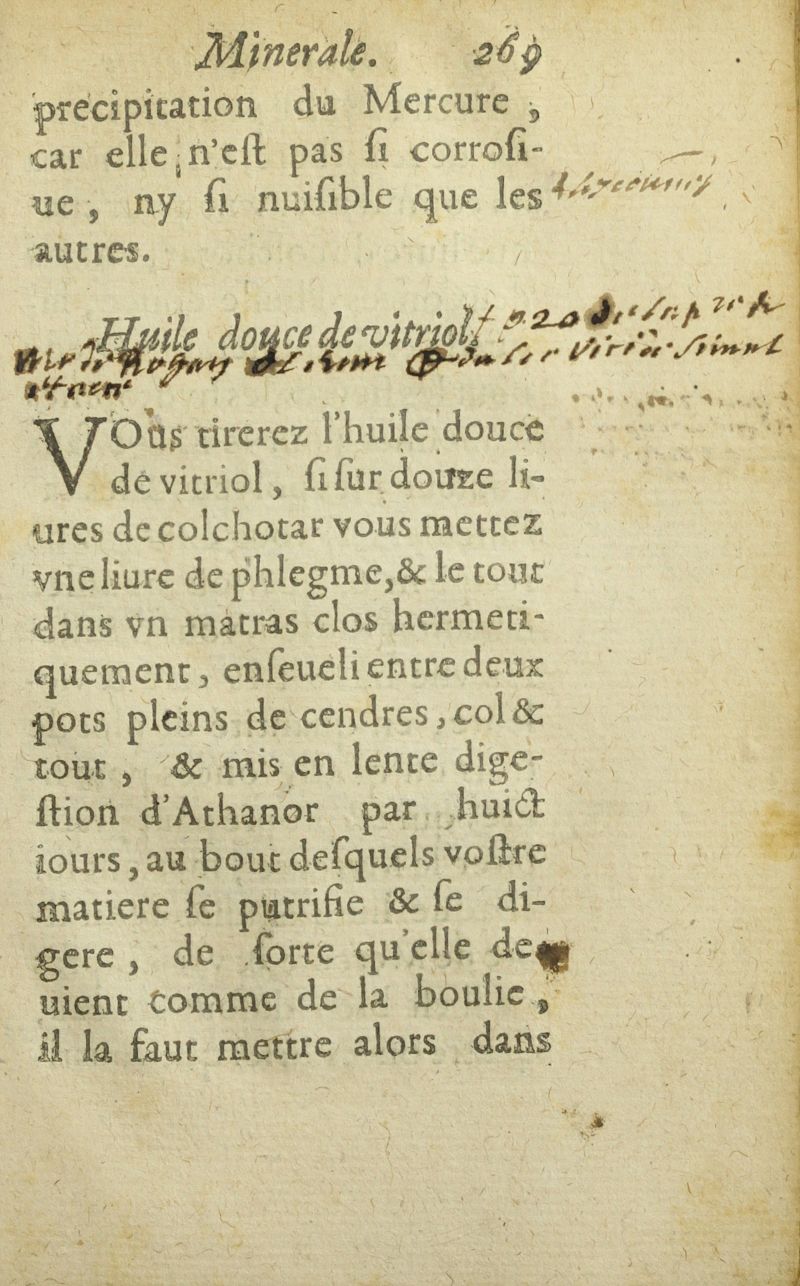 Minerale. 269
precipitation du Mercure ,
car elle n'eſt pas ſi corroſi-
ue , ny ſi nuiſible que les
autres.
Huile douce de vitriol.
VOus tirerez l'huile douce
de vitriol , ſi ſur douze li-
ures de colchotar vous mettez
vne liure de phlegme, & le tout
dans vn matras clos hermeti-
quement , enſeueli entre deux
pots pleins de cendres , col &
tout , & mis en lente dige-
ſtion d'Athanor par huict
iours , au bout deſquels voſtre
matiere ſe putrifie & ſe di-
gere , de ſorte qu'elle de-
uient comme de la boulie ,
il la faut mettre alors dans